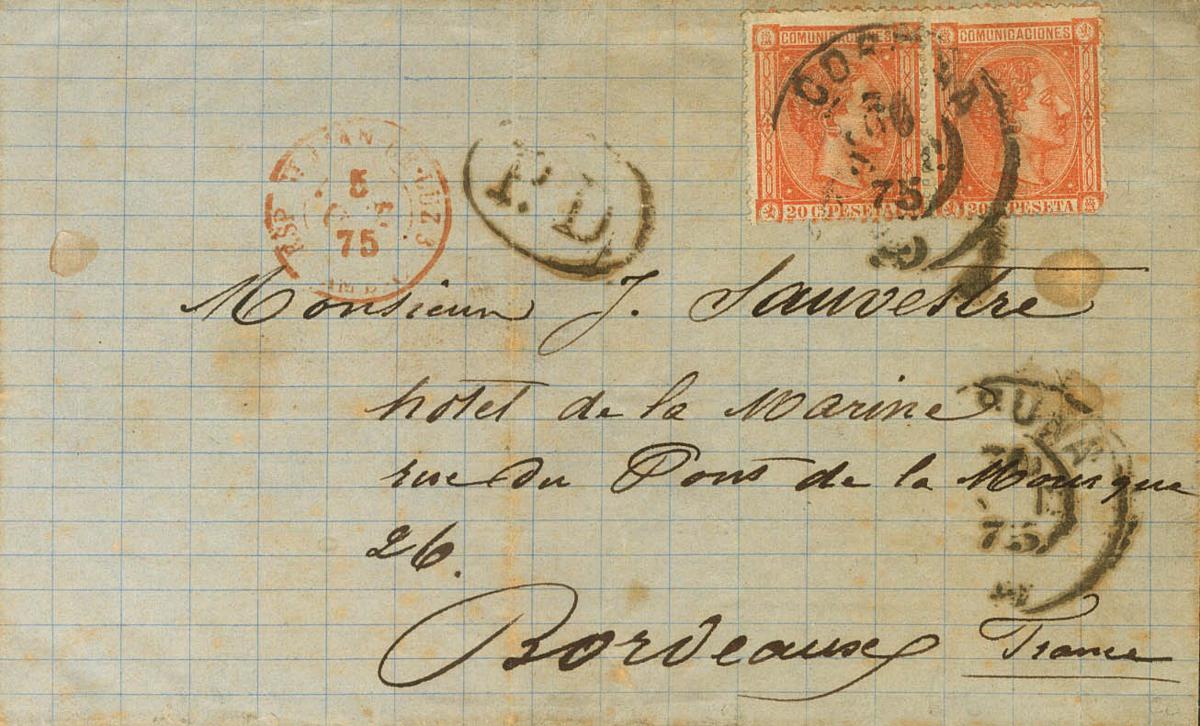 COMUNICACIONES COMUNICACIONES
CORUNA
75
20 Cs PESETA 20 Cs PESETA
ESP. LUZ 3
5
75
P. D
Monsieur J. Sauvestre
hotel de la Marine
rue du Pont de la Mousque
26.
Bordeaux France
RUNA
75